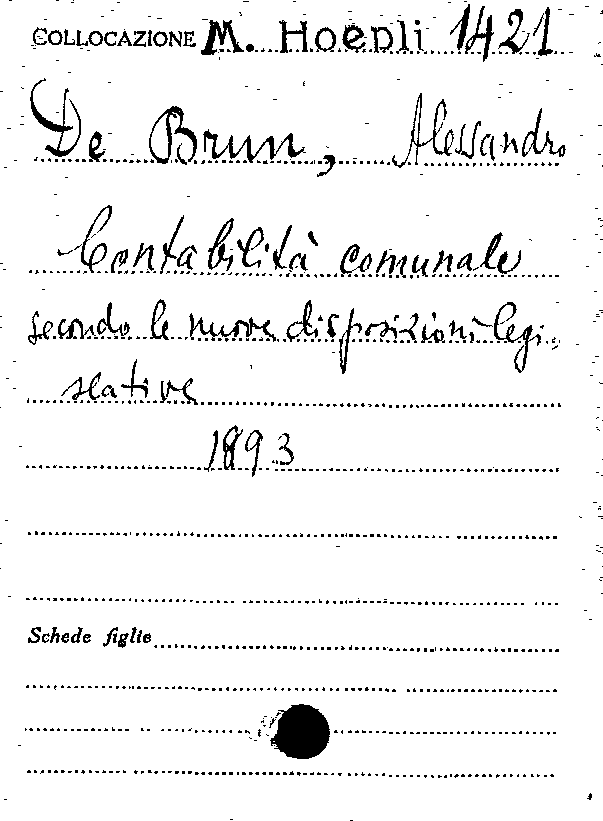 COLLOCAZIONE M. Hoepli 1421
De Brun, Alessandro
Contabilità comunale
secondo le nuove disposizioni legi-
slative
1893
Schede figlie